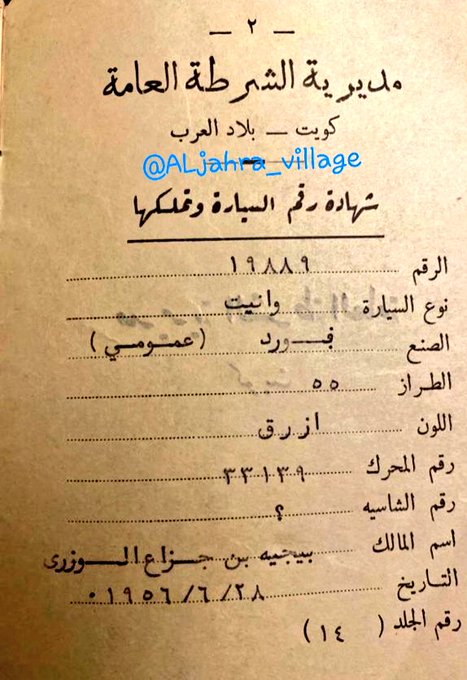 — ٢ —
مديرية الشرطة العامة
كويت — بلاد العرب
@ALjahra_village
شهادة رقم السيارة وتملكها
الرقم ١٩٨٨٩
نوع السيارة وانيت
الصنع فورد (عمومي)
الطراز ٥٥
اللون ازرق
رقم المحرك ٣٣١٣٩
رقم الشاسيه ؟
اسم المالك بيجيه بن جزاع الوزرى
التاريخ ٢٨/٦/١٩٥٦٠
رقم الجلد (١٤)